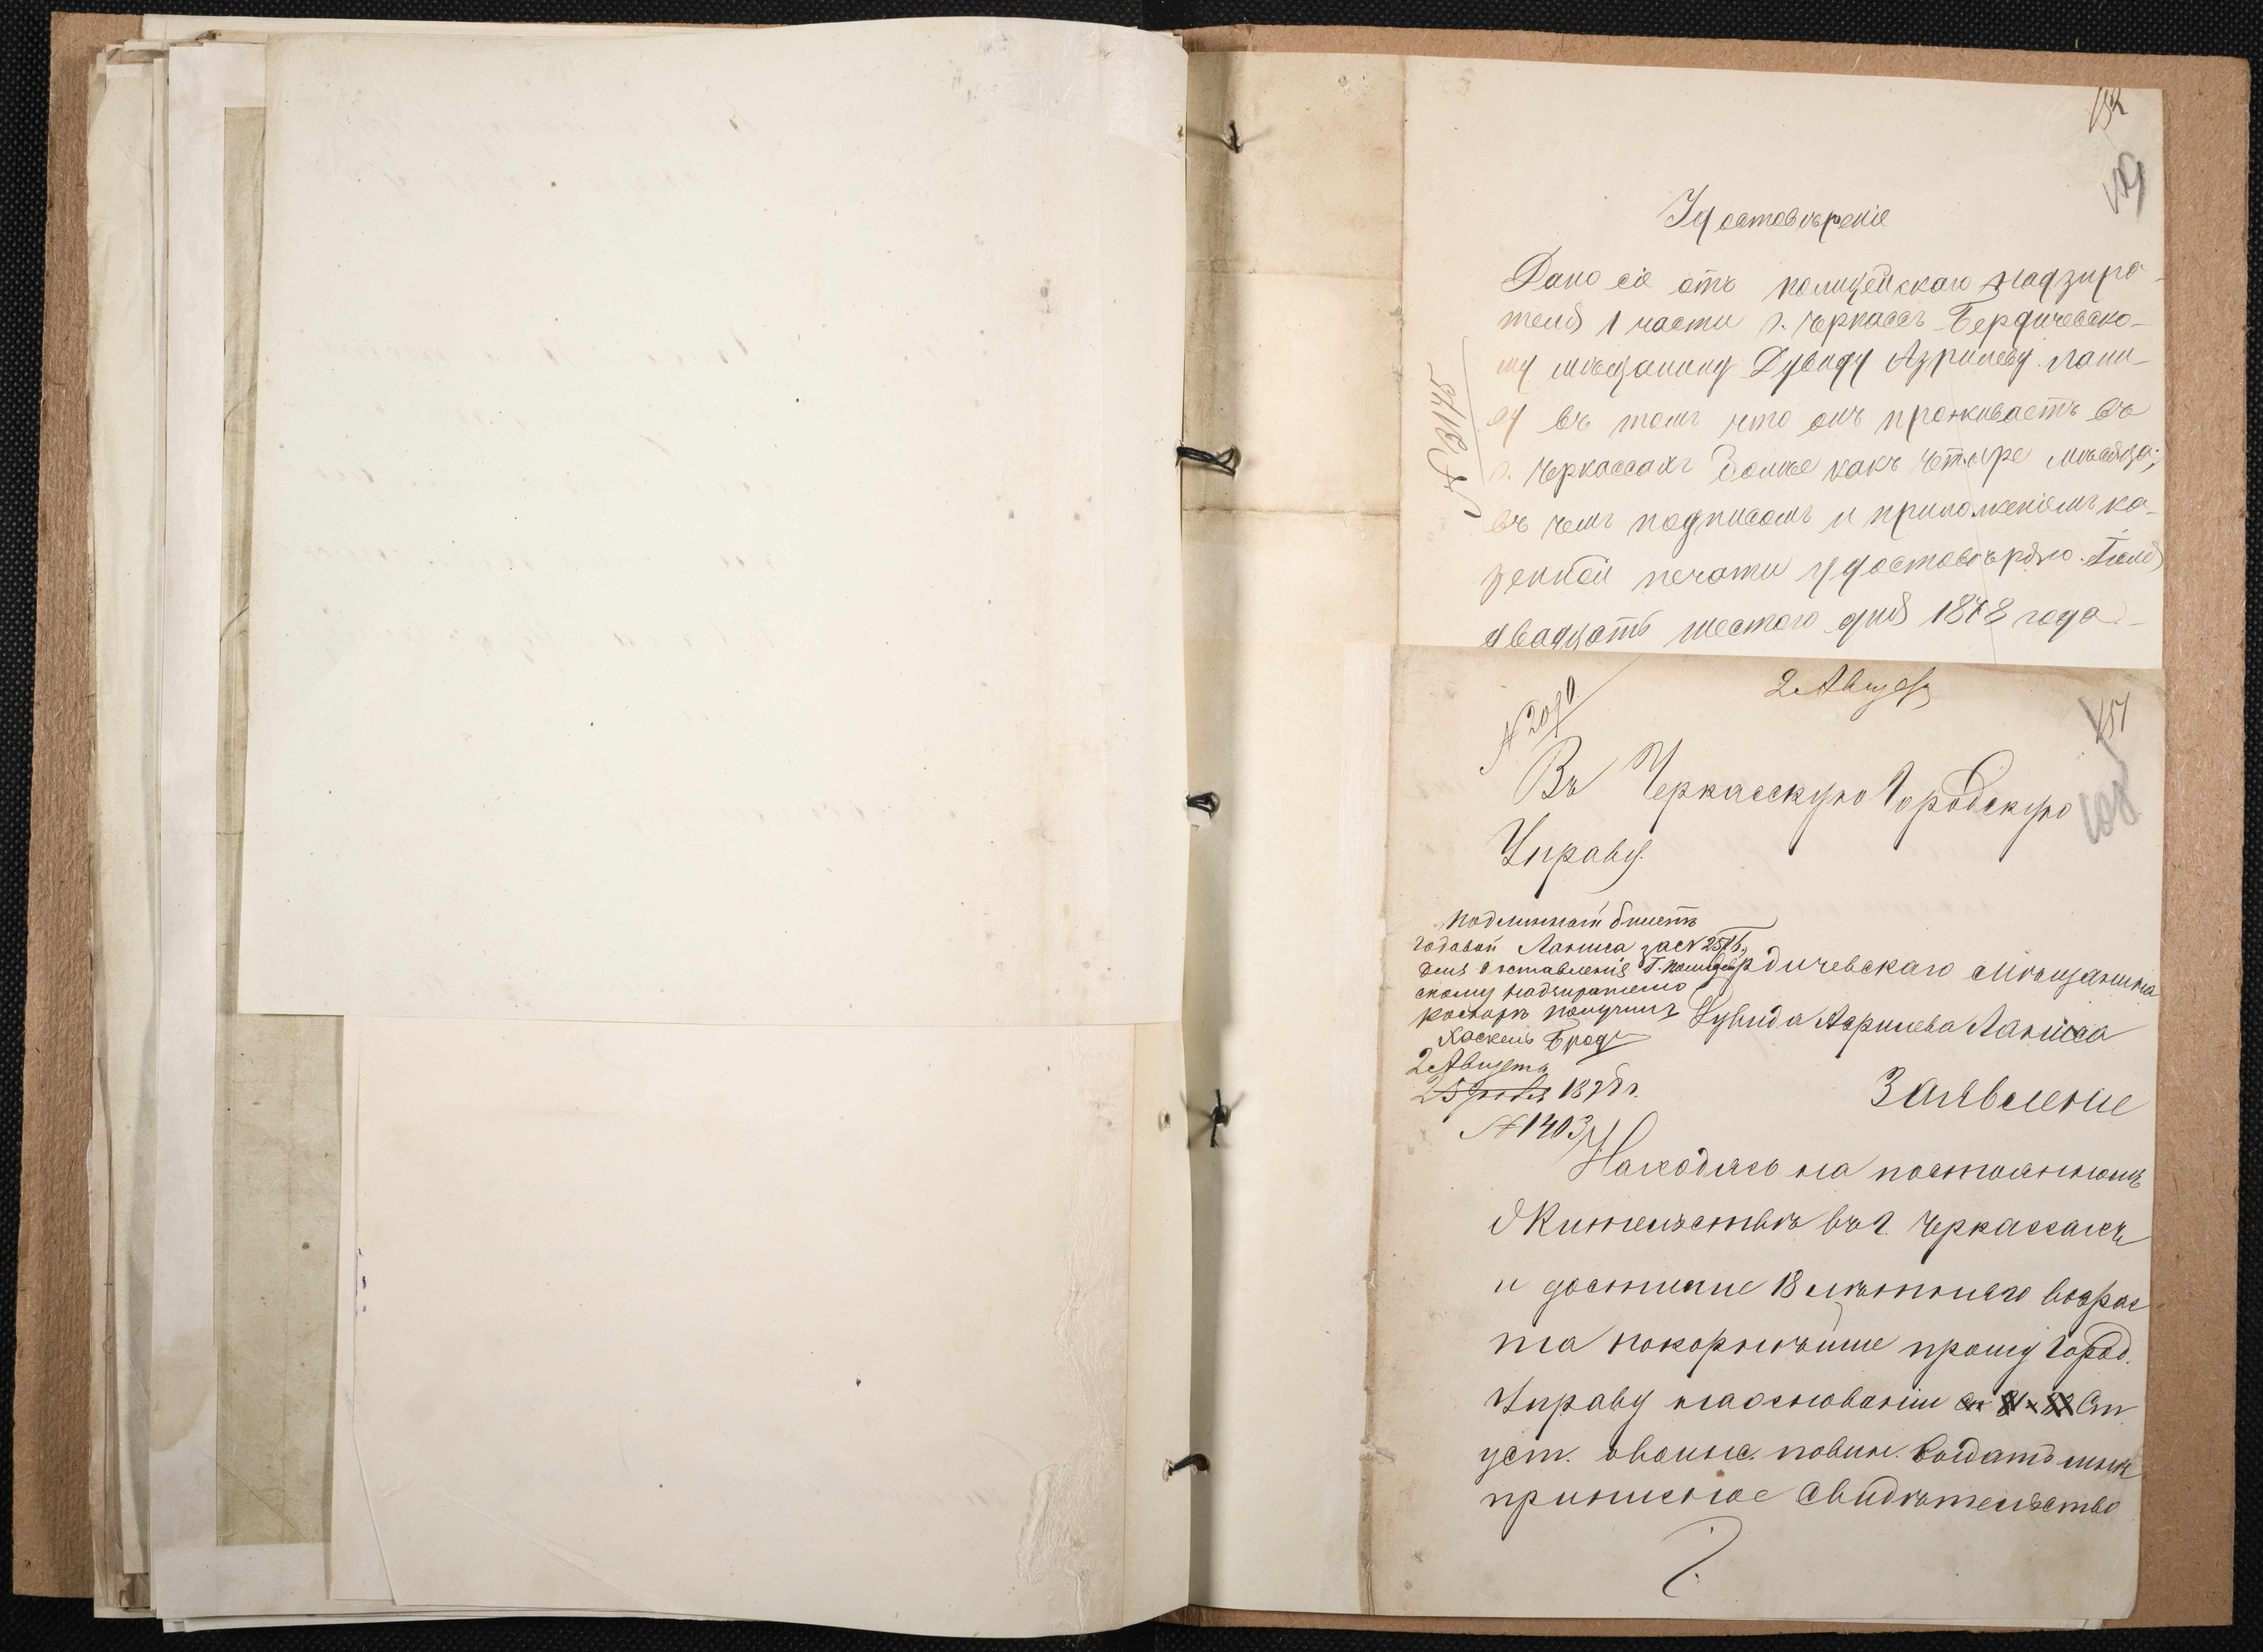 152
Удостовѣреніе
Дано сіе отъ полицейскаго надзира-
теля 1 части г. Черкассъ Бердичевско-
му мѣщанину Дувиду Азрилеву Лани-
су въ томъ что онъ проживаетъ въ
г. Черкассахъ болѣе какъ четыре мѣсяца;
въ чемъ подписомъ и приложеніемъ ка-
зенной печати удостовѣряю. Іюля
двадцать шестого дня 1878 года
№ 3175
2 Августа
151
Въ Черкасскую Городскую
Управу.
Подлинный билетъ
годовой Ланиса за №
для доставленія Г. Полицей-
скому Надзирателю
получилъ
Хаскель Брод
2 Августа
1878 г.
№ 1403
Бердичевскаго мѣщанина
Дувида Азрилева Ланиса
Заявление
Находясь на постоянномъ
Жительствѣ въ г. Черкассахъ
и достигие 18 лѣтняго возрас
та покорнѣише прошу Город.
Управу наоснованіи Ст
уст. овоинс. повин. выдать мнѣ
приписное Свидѣтельство